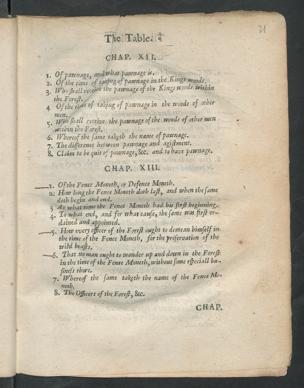 71
The Table.
CHAP. XII.
1. Of pawnage, and what pawnage is.
2. Of the time of taking of pawnage in the Kings woods.
3. Who shall receive the pawnage of the Kings woods within
the Forest.
4 Of the time of taking of pawnage in the woods of other
men.
5. Who shall receive the pawnage of the woods of other men
within the Forest.
6. Whereof the same taketh the name of pawnage.
7. The difference between pawnage and agistment.
8. Claim to be quit of pawnage, &c. and to have pawnage.
CHAP. XIII.
1. Of the Fence Moneth, or Defence Moneth.
2. How long the Fence Moneth doth last, and when the same
doth begin and end.
3 At what time the Fence Moneth had his first beginning.
4. To what end, and for what cause, the same was first or-
dained and appointed.
5. How every officer of the Forest ought to demean himself in
the time of the Fence Moneth, for the preservation of the
wild beasts.
6. That no man ought to wander up and down in the Forest
in the time of the Fence Moneth, without some especiall bu-
siness there.
7. Whereof the same taketh the name of the Fence Mo-
neth.
8. The Officers of the Forest, &c.
CHAP.